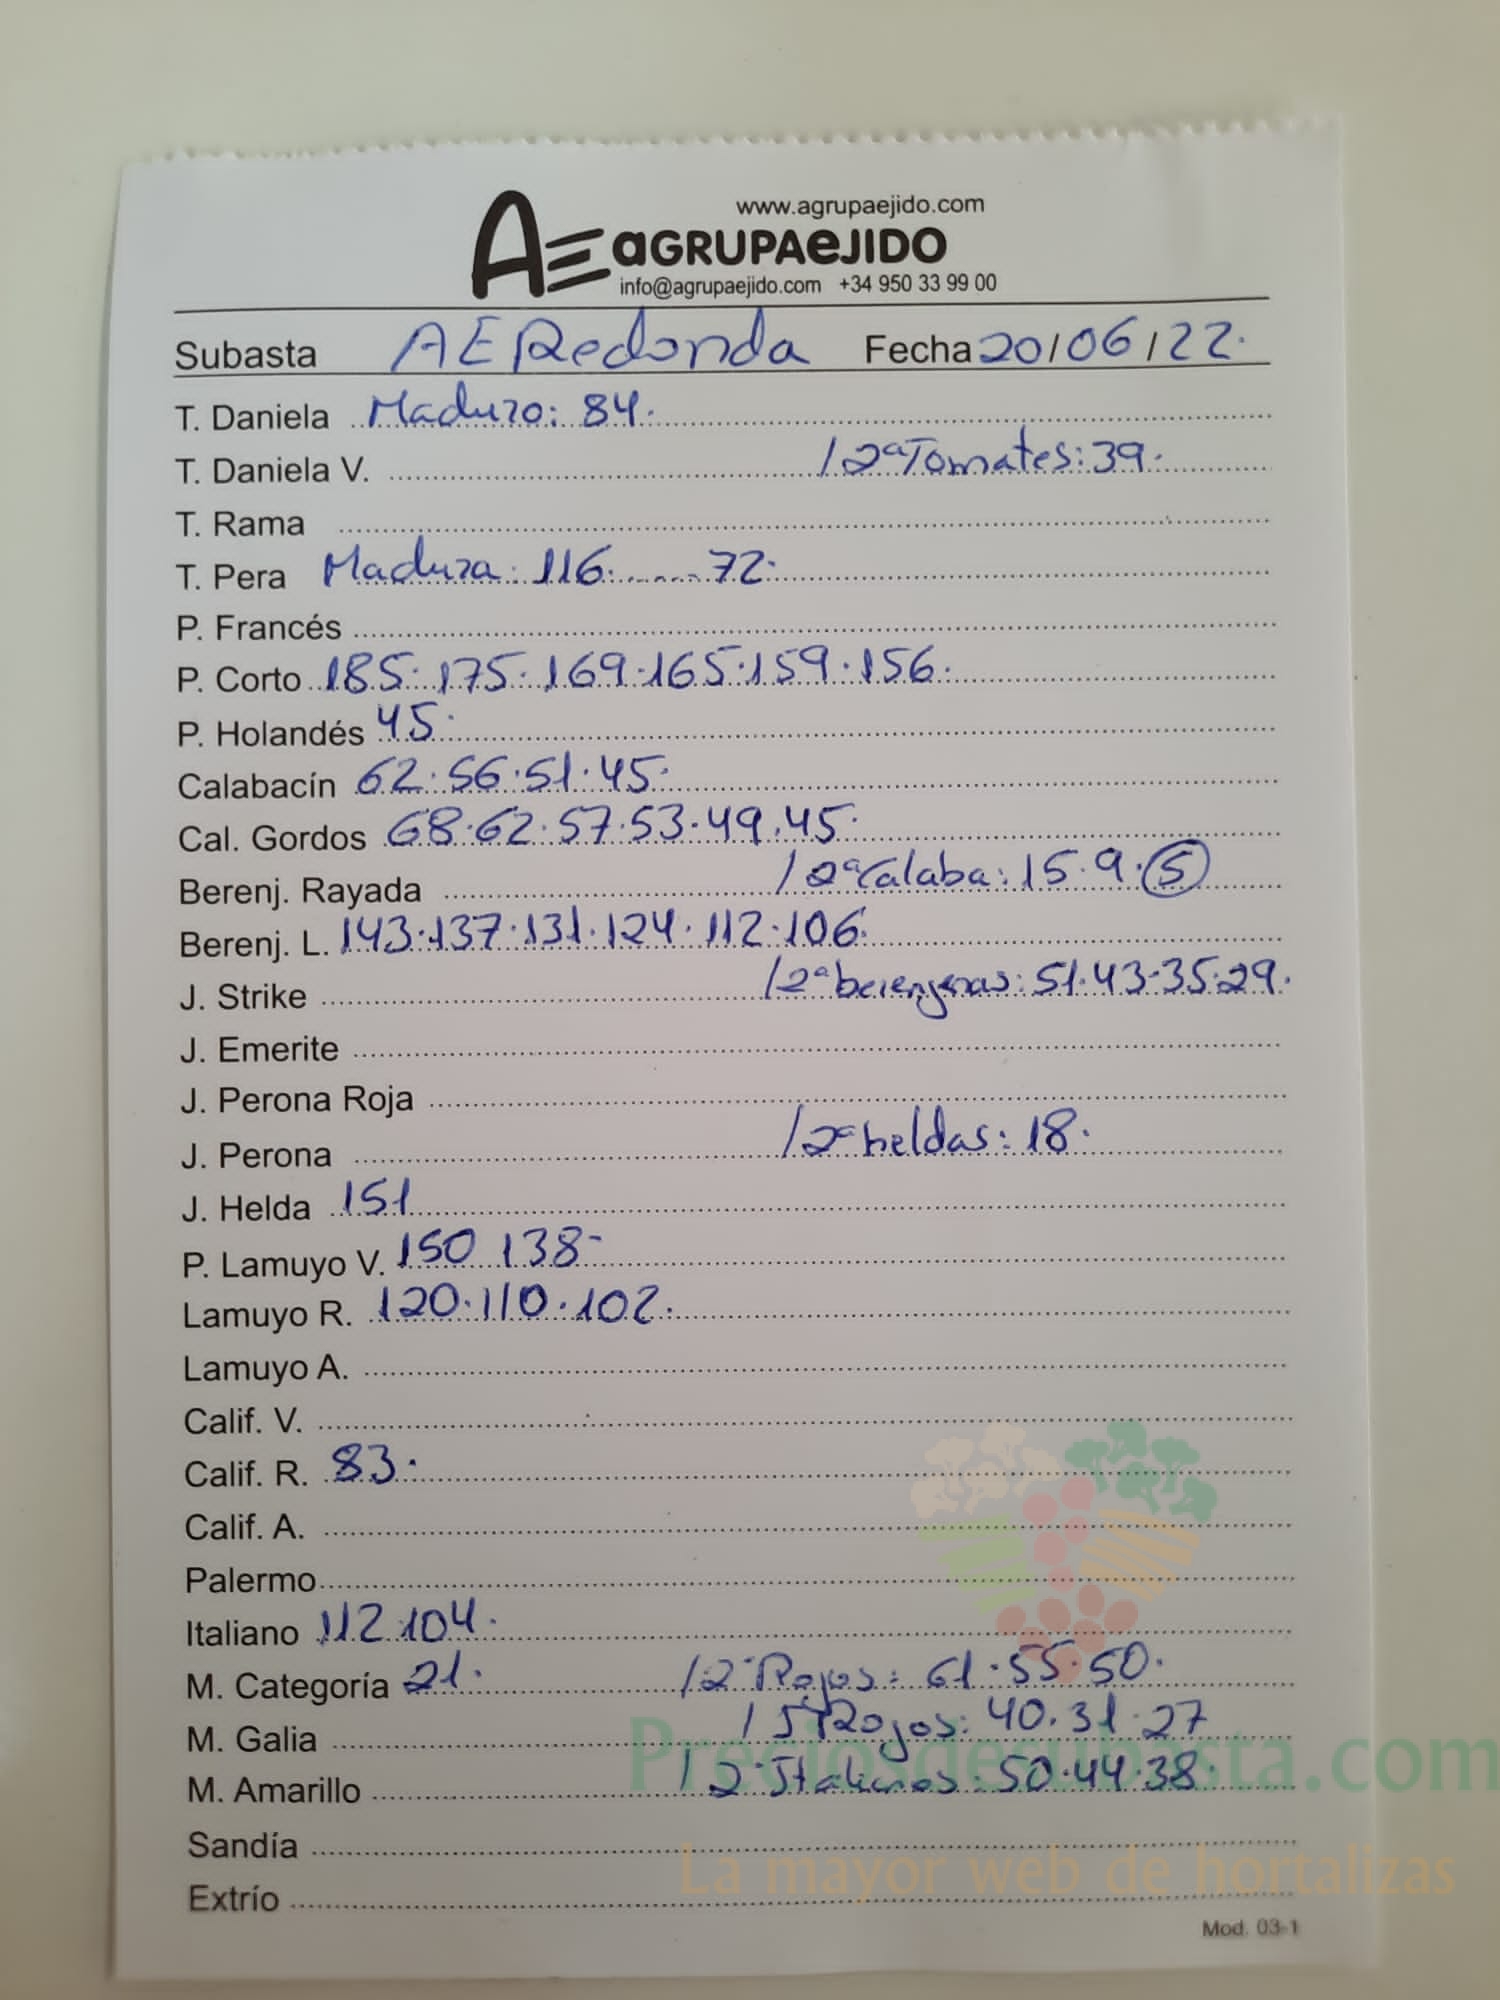 www.agrupaejido.com
AE aGRUPAeJIDO
info@agrupaejido.com +34 950 33 99 00
Subasta AE Redonda Fecha 20/06/22.
T. Daniela Maduro: 84.
T. Daniela V. /2ª Tomates: 39.
T. Rama
T. Pera Madura: 116......72.
P. Francés
P. Corto 185.175.169.165.159.156.
P. Holandés 45.
Calabacín 62.56.51.45.
Cal. Gordos 68.62.57.53.49.45.
Berenj. Rayada /2ª Calaba: 15.9.5
Berenj. L. 143.137.131.124.112.106.
J. Strike /2ª berenjenas: 51.43.35.29.
J. Emerite
J. Perona Roja
J. Perona /2ª heldas: 18.
J. Helda 151
P. Lamuyo V. 150 138-
Lamuyo R. 120.110.102.
Lamuyo A.
Calif. V.
Calif. R. 83.
Calif. A.
Palermo
Italiano 112.104.
M. Categoría 21. /2ª Rojos: 61.55.50.
M. Galia / Rojos: 40.31.27
M. Amarillo /2ª Italianos: 50.44.38.
Preciosdesubasta.com
Sandía
La mayor web de hortalizas
Extrío
Mod. 03-1